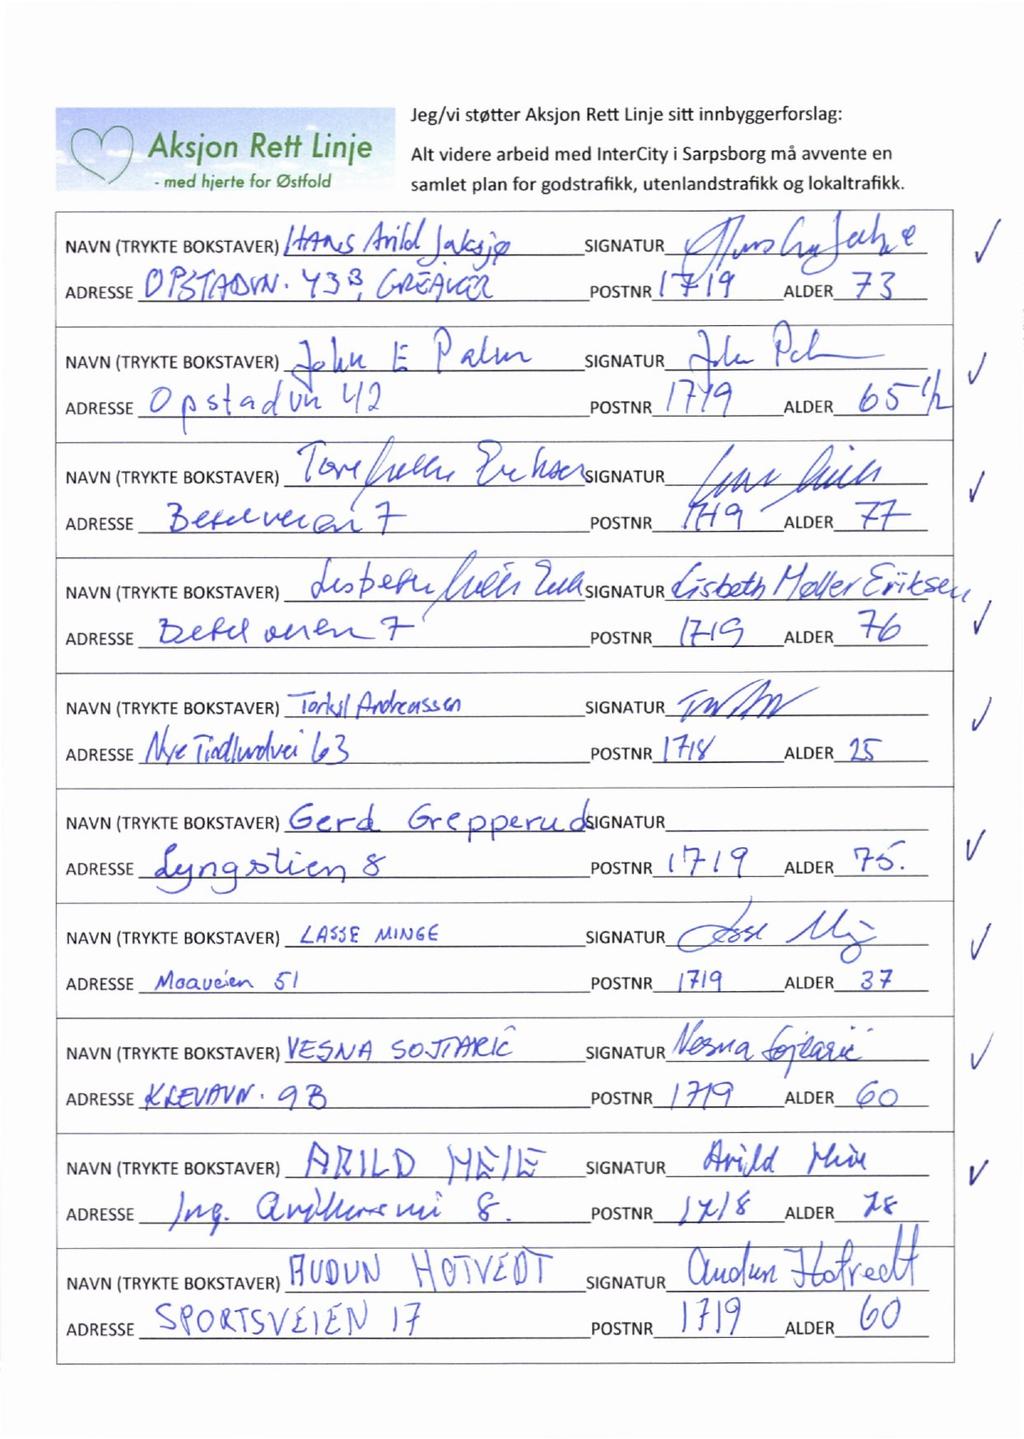 Aksjon Rett Linje
- med hjerte for Østfold
Jeg/vi støtter Aksjon Rett Linje sitt innbyggerforslag:
Alt videre arbeid med InterCity i Sarpsborg må avvente en
samlet plan for godstrafikk, utenlandstrafikk og lokaltrafikk.
NAVN (TRYKTE BOKSTAVER) HANS Arild Jaksjø SIGNATUR
ADRESSE OPSTADVN. 43B, GREÅKER POSTNR 1719 ALDER 73
NAVN (TRYKTE BOKSTAVER) John E Palm SIGNATUR
ADRESSE Opstadvn 42 POSTNR 1719 ALDER 65 1/2
NAVN (TRYKTE BOKSTAVER) Tore Eriksen SIGNATUR
ADRESSE Betelveien 7 POSTNR 1719 ALDER 77
NAVN (TRYKTE BOKSTAVER) Lisbeth SIGNATUR Lisbeth Møller Eriksen
ADRESSE Betelveien 7 POSTNR 1719 ALDER 76
NAVN (TRYKTE BOKSTAVER) Andreassen SIGNATUR
ADRESSE Nye Tindlundvei 63 POSTNR 1718 ALDER 25
NAVN (TRYKTE BOKSTAVER) Gerd Grepperud SIGNATUR
ADRESSE Lyngstien 8 POSTNR 1719 ALDER 75.
NAVN (TRYKTE BOKSTAVER) LASSE MINGE SIGNATUR
ADRESSE Moaveien 51 POSTNR 1719 ALDER 37
NAVN (TRYKTE BOKSTAVER) VESNA SOJTARIĆ SIGNATUR Vesna Sojtarić
ADRESSE KLEVAVN. 9B POSTNR 1719 ALDER 60
NAVN (TRYKTE BOKSTAVER) ARILD MEIE SIGNATUR Arild
ADRESSE Ing. 8. POSTNR 1718 ALDER 78
NAVN (TRYKTE BOKSTAVER) AUDUN HOTVEDT SIGNATUR Audun Hotvedt
ADRESSE SPORTSVEIEN 17 POSTNR 1719 ALDER 60